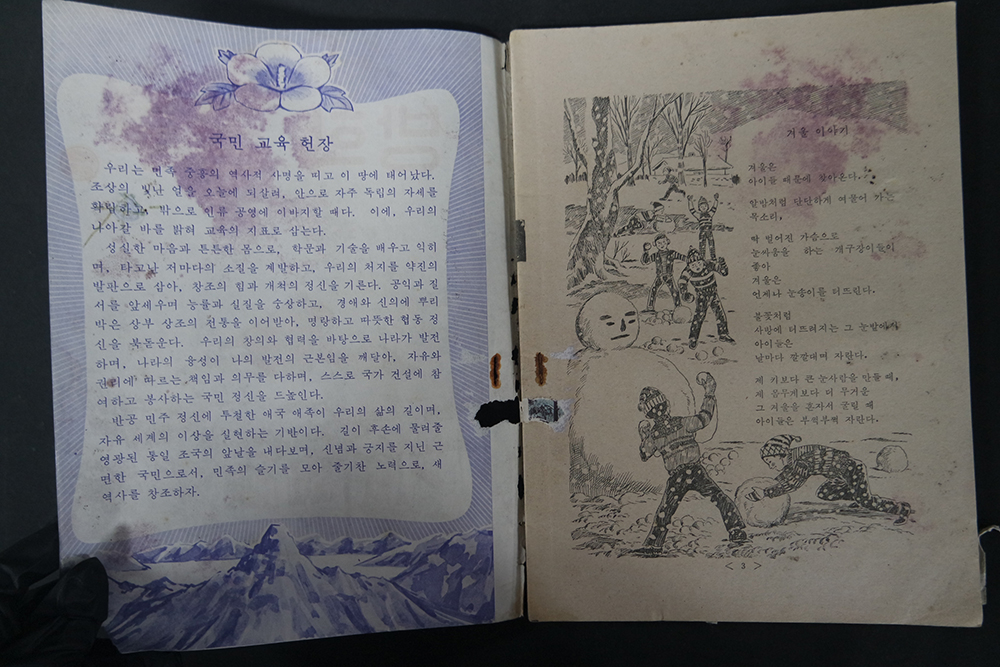 국민 교육 헌장
우리는 민족 중흥의 역사적 사명을 띠고 이 땅에 태어났다.
조상의 빛난 얼을 오늘에 되살려, 안으로 자주 독립의 자세를
확립하고, 밖으로 인류 공영에 이바지할 때다. 이에, 우리의
나아갈 바를 밝혀 교육의 지표로 삼는다.
성실한 마음과 튼튼한 몸으로, 학문과 기술을 배우고 익히
며, 타고난 저마다의 소질을 계발하고, 우리의 처지를 약진의
발판으로 삼아, 창조의 힘과 개척의 정신을 기른다. 공익과 질
서를 앞세우며 능률과 실질을 숭상하고, 경애와 신의에 뿌리
박은 상부 상조의 전통을 이어받아, 명랑하고 따뜻한 협동 정
신을 북돋운다. 우리의 창의와 협력을 바탕으로 나라가 발전
하며, 나라의 융성이 나의 발전의 근본임을 깨달아, 자유와
권리에 따르는 책임과 의무를 다하며, 스스로 국가 건설에 참
여하고 봉사하는 국민 정신을 드높인다.
반공 민주 정신에 투철한 애국 애족이 우리의 삶의 길이며,
자유 세계의 이상을 실현하는 기반이다. 길이 후손에 물려줄
영광된 통일 조국의 앞날을 내다보며, 신념과 긍지를 지닌 근
면한 국민으로서, 민족의 슬기를 모아 줄기찬 노력으로, 새
역사를 창조하자.
겨울 이야기
겨울은
아이들 때문에 찾아온다.
알밤처럼 단단하게 여물어 가는
목소리,
딱 벌어진 가슴으로
눈싸움을 하는 개구장이들이
좋아
겨울은
언제나 눈송이를 터뜨린다.
불꽃처럼
사방에 터뜨려지는 그 눈발에서
아이들은
날마다 깔깔대며 자란다.
제 키보다 큰 눈사람을 만들 때,
제 몸무게보다 더 무거운
그 겨울을 혼자서 굴릴 때
아이들은 부쩍부쩍 자란다.
< 3 >